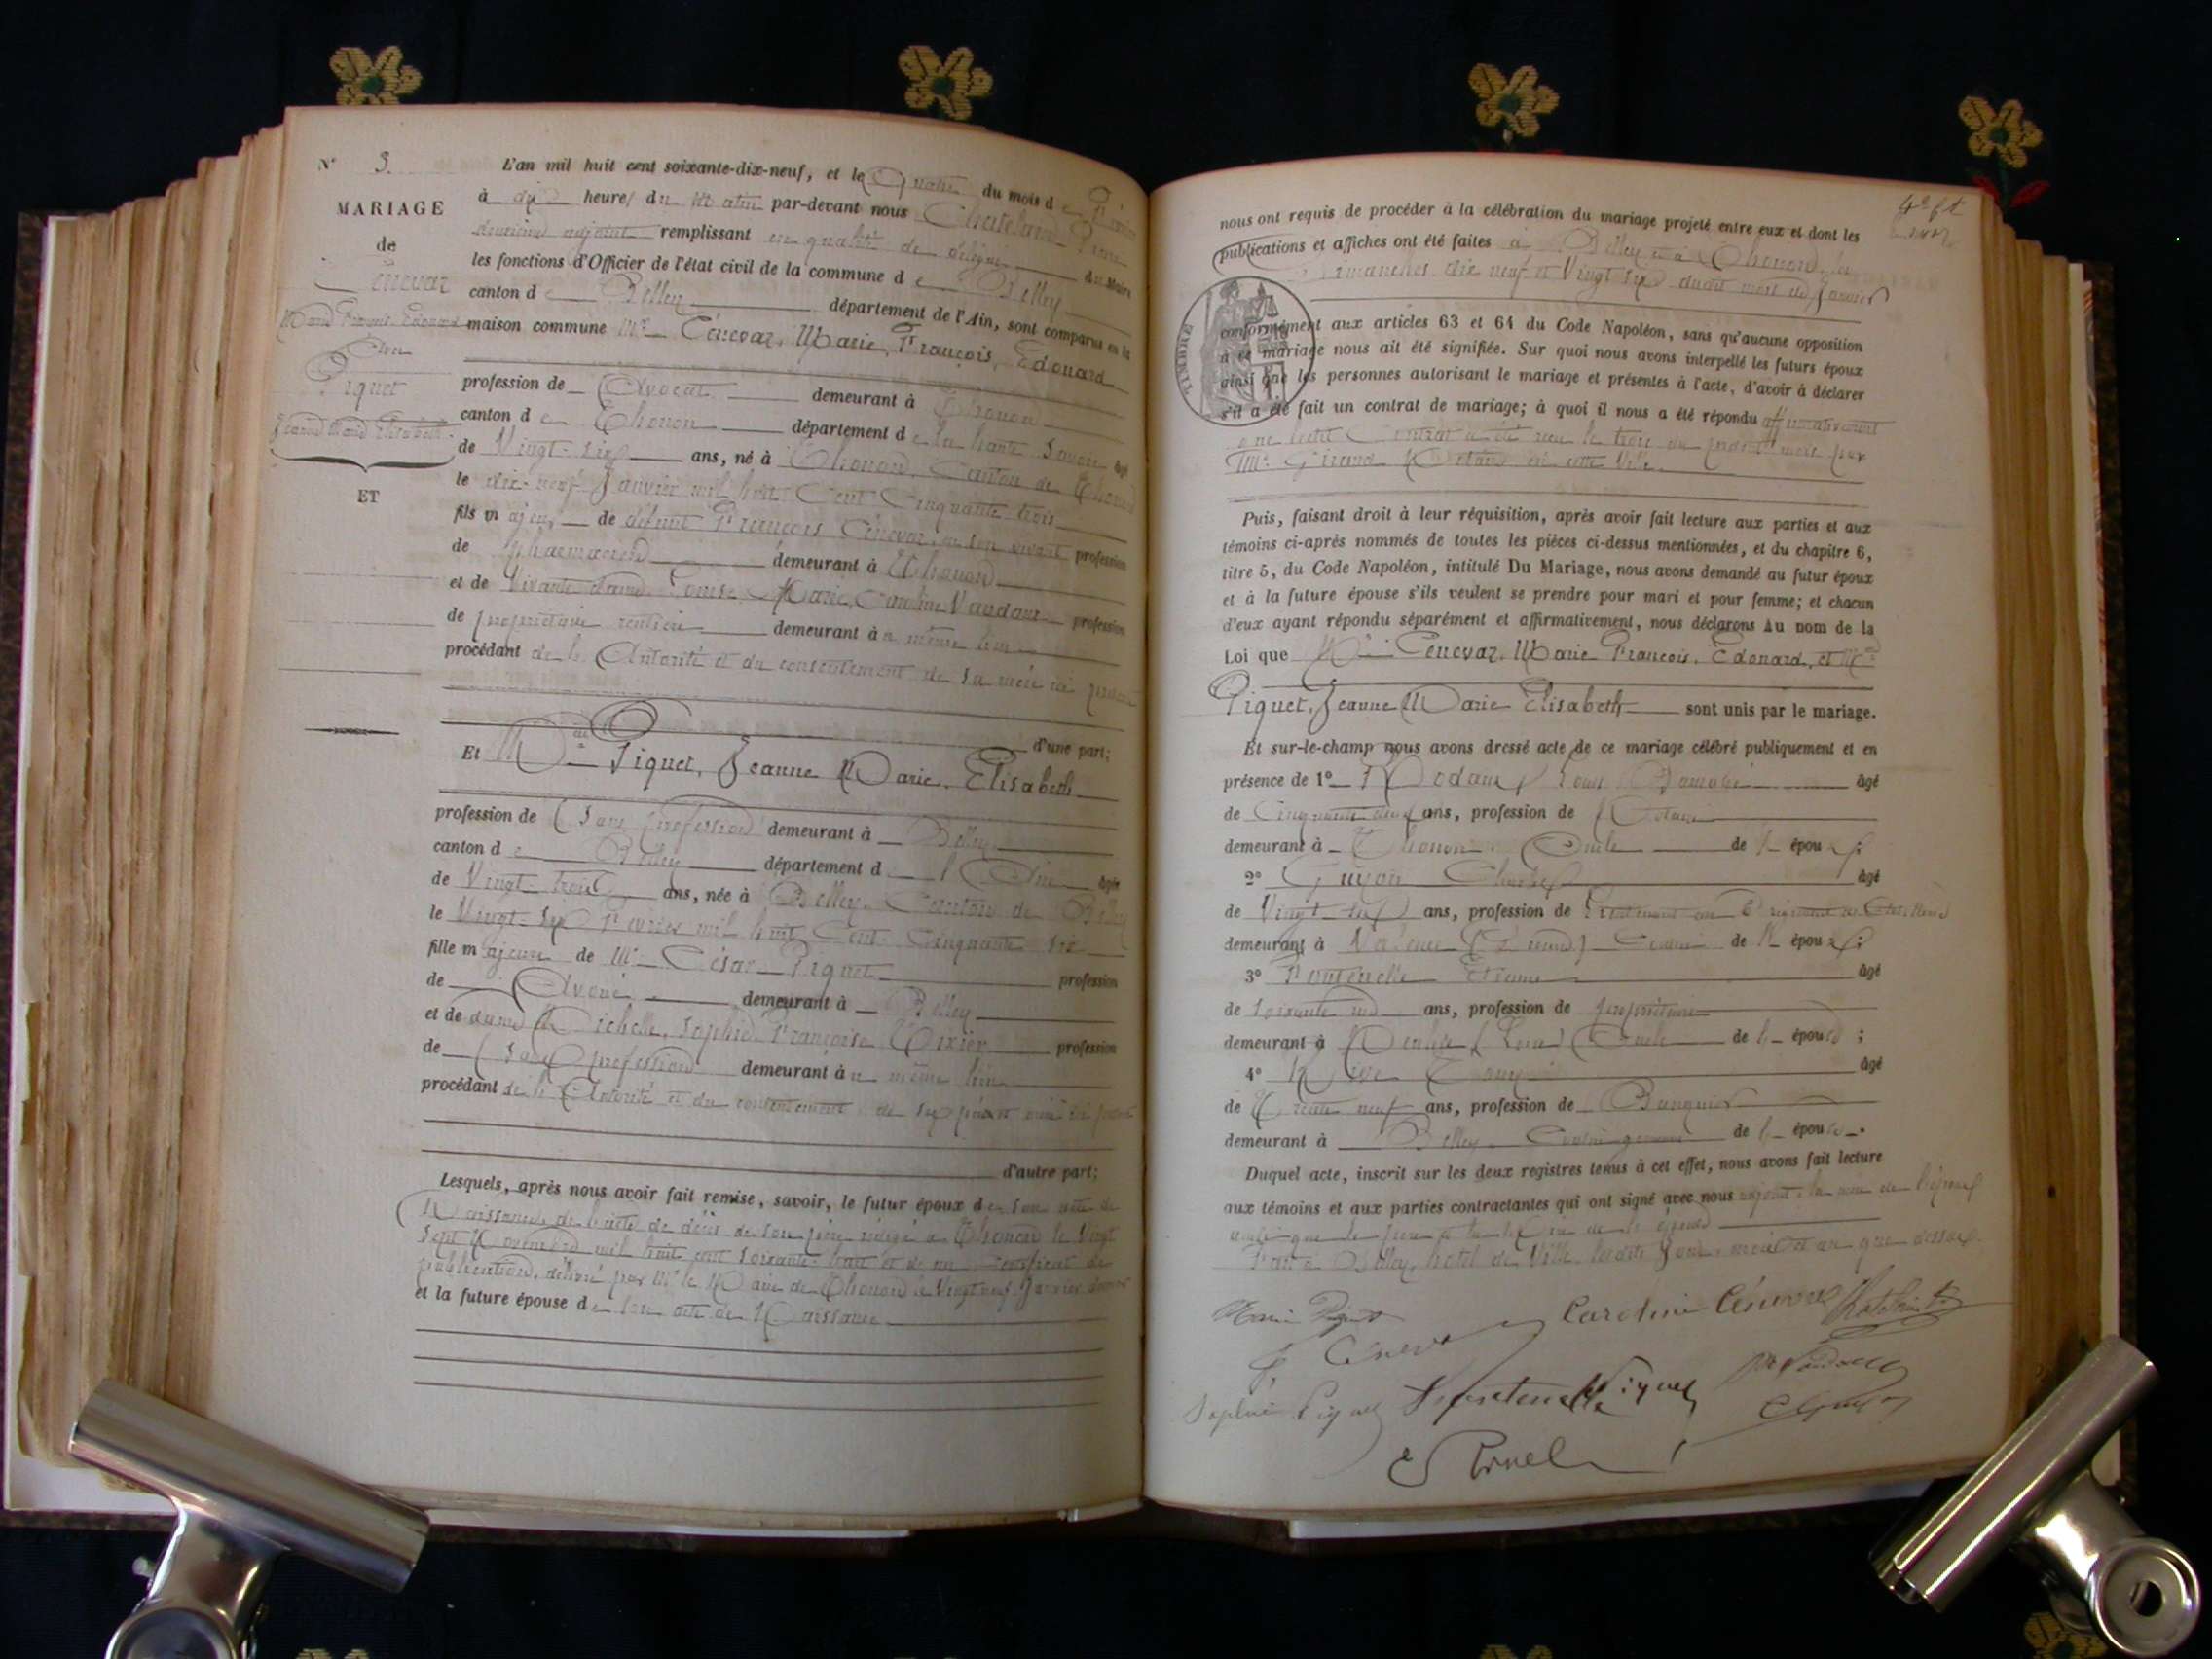 N° 3.
MARIAGE
de
Cénevaz
Marie François Edouard
Avec
Piquet
Jeanne Marie Elisabeth
ET
L'an mil huit cent soixante-dix-neuf, et le Quatre du mois de Février
à dix heures du Matin par-devant nous Chatelain
deuxième adjoint remplissant en qualité de délégué du Maire
les fonctions d'Officier de l'état civil de la commune de Belley
canton de Belley département de l'Ain, sont comparus en la
maison commune Mr Cénevaz, Marie, François, Edouard
profession de Avocat demeurant à Thonon
canton de Thonon département de la haute Savoie âgé
de Vingt-six ans, né à Thonon, Canton de Thonon
le dix-neuf Janvier mil huit Cent Cinquante trois
fils majeur de défunt François Cénevaz, en son vivant profession
de pharmacien demeurant à Thonon
et de Vivante dame Louise, Marie, Caroline Vaudaux profession
de propriétaire rentière demeurant à même lieu
procédant de l'Autorité et du consentement de sa mère ici présente
d'une part;
Et Mlle Piquet, Jeanne Marie, Elisabeth
profession de Sans profession demeurant à Belley
canton de Belley département de l'Ain âgée
de Vingt-trois ans, née à Belley, Canton de Belley
le Vingt-six Février mil huit Cent Cinquante six
fille majeure de Mr César Piquet profession
de Avoué demeurant à Belley
et de dame Michelle, Sophie, Françoise Tixier profession
de Sans profession demeurant à même lieu
procédant de l'Autorité et du consentement de ses père et mère ici présents
d'autre part;
Lesquels, après nous avoir fait remise, savoir, le futur époux de son acte de
Naissance, de l'acte de décès de son père rédigé à Thonon le Vingt
sept Novembre mil huit cent soixante-huit et de un Certificat de
publication, délivré par Mr le Maire de Thonon le Vingt neuf Janvier dernier
et la future épouse de son acte de Naissance
nous ont requis de procéder à la célébration du mariage projeté entre eux et dont les
publications et affiches ont été faites à Belley et à Thonon les
dimanches dix neuf et Vingt six dudit mois de Janvier
TIMBRE
conformément aux articles 63 et 64 du Code Napoléon, sans qu'aucune opposition
à ce mariage nous ait été signifiée. Sur quoi nous avons interpellé les futurs époux
ainsi que les personnes autorisant le mariage et présentes à l'acte, d'avoir à déclarer
s'il a été fait un contrat de mariage; à quoi il nous a été répondu affirmativement
que ledit Contrat a été reçu le trois du présent mois par
Me Girard Notaire en cette Ville
Puis, faisant droit à leur réquisition, après avoir fait lecture aux parties et aux
témoins ci-après nommés de toutes les pièces ci-dessus mentionnées, et du chapitre 6,
titre 5, du Code Napoléon, intitulé Du Mariage, nous avons demandé au futur époux
et à la future épouse s'ils veulent se prendre pour mari et pour femme; et chacun
d'eux ayant répondu séparément et affirmativement, nous déclarons Au nom de la
Loi que Mr Cénevaz, Marie François, Edouard, et Mlle
Piquet, Jeanne Marie Elisabeth sont unis par le mariage.
Et sur-le-champ nous avons dressé acte de ce mariage célébré publiquement et en
présence de 1° Louis âgé
de Cinquante deux ans, profession de Notaire
demeurant à Thonon Oncle de l'époux;
2° Guyon Charles âgé
de Vingt-six ans, profession de Lieutenant au 6e régiment
demeurant à Valence de l'époux;
3° Fontenelle Etienne âgé
de soixante ans, profession de propriétaire
demeurant à Oncle de l'épouse;
4° âgé
de Trente neuf ans, profession de Banquier
demeurant à Belley, Cousin germain de l'épouse.
Duquel acte, inscrit sur les deux registres tenus à cet effet, nous avons fait lecture
aux témoins et aux parties contractantes qui ont signé avec nous adjoint, la mère de l'époux
ainsi que le père et la mère de l'épouse
Fait à Belley, hôtel de Ville, lesdits Jour, mois et an que dessus.
Marie Piquet Caroline Cénevaz Chatelain
E. Cénevaz
Sophie Piquet Fontenelle Piquet
C Guyon